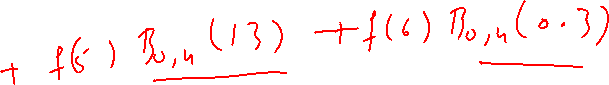 + f(5) B₀,₄(13) + f(6) B₀,₄(0.3)